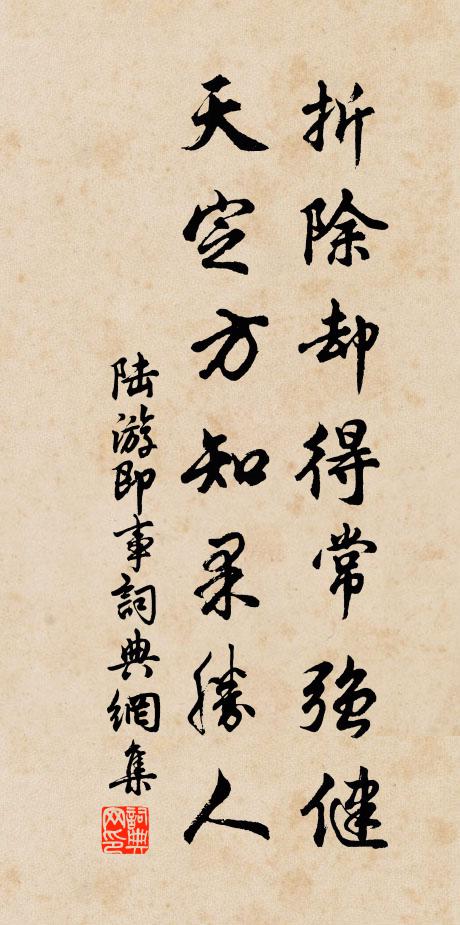 折除却得常强健
天定方知果勝人
陆游即事詞典網集
詞典网印